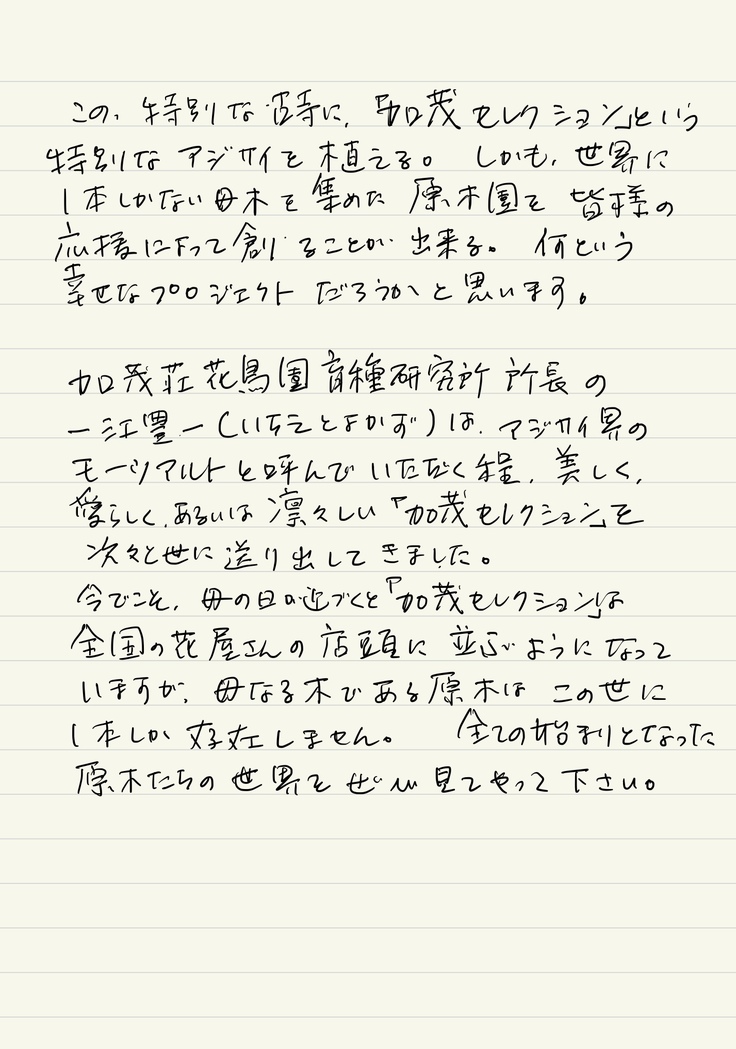 この、特別な古寺に、「加茂セレクション」という
特別なアジサイを植える。 しかも、世界に
1本しかない母木を集めた 原木園を 皆様の
応援によって創ることが出来る。 何という
幸せなプロジェクト だろうか と思います。
加茂荘花鳥園 育種研究所 所長の
一江豊一(いちえとよかず)は、アジサイ界の
モーツアルトと呼んでいただく程、美しく、
愛らしく、あるいは 凛々しい「加茂セレクション」を
次々と世に送り出してきました。
今でこそ、母の日が近づくと「加茂セレクション」は
全国の花屋さんの店頭に 並ぶようになって
いますが、母なる木である原木は この世に
1本しか存在しません。 全ての始まりとなった
原木たちの世界をぜひ見てやって下さい。